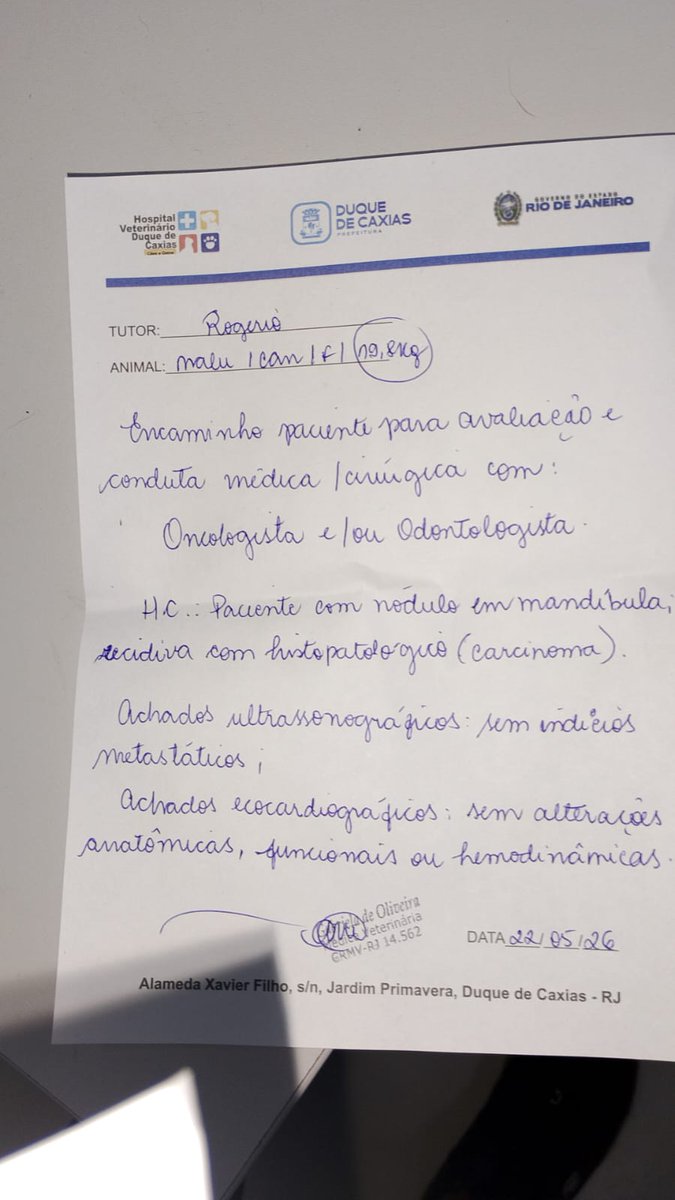 Hospital
Veterinário
Duque de
Caxias
Cães e Gatos
DUQUE
DE CAXIAS
PREFEITURA
GOVERNO DO ESTADO
RIO DE JANEIRO
TUTOR: Rogerio
ANIMAL: malu / can / f / 19,8kg
Encaminho paciente para avaliação e
conduta médica / cirúrgica com:
Oncologista e/ou Odontologista.
H.C.: Paciente com nódulo em mandíbula;
recidiva com histopatológico (carcinoma).
Achados ultrassonográficos: sem indícios
metastáticos;
Achados ecocardiográficos: sem alterações
anatômicas, funcionais ou hemodinâmicas.
de Oliveira
Veterinária
CRMV-RJ 14.562
DATA 22/05/26
Alameda Xavier Filho, s/n, Jardim Primavera, Duque de Caxias - RJ